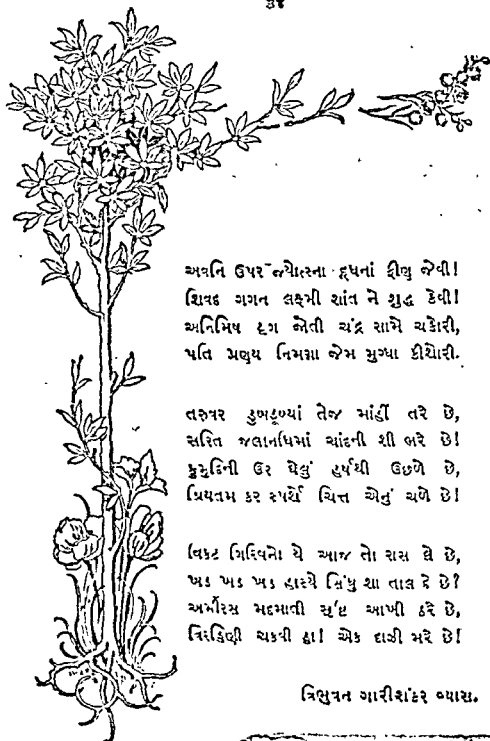 ૩૪
અવનિ ઉપર જ્યોત્સ્ના દૂધનાં ફીણ જેવી!
શિવદ ગગન લક્ષ્મી શાંત ને શુદ્ધ કેવી!
અનિમિષ દૃગ જોતી ચંદ્ર સામે ચકોરી,
પતિ પ્રણય નિમગ્ના જેમ મુગ્ધા કીશોરી.
તરુવર ડુબડૂબ્યાં તેજ માંહીં તરે છે,
સરિત જલનિધિમાં ચાંદની શી ભરે છે!
કુમુદિની ઉર ઘેલું હર્ષથી ઉછળે છે,
પ્રિયતમ કર સ્પર્શે ચિત્ત એનું ચળે છે!
વિકટ ગિરિવનો યે આજ તો રાસ લે છે,
ખડ ખડ ખડ હાસ્યે સિંધુ શા તાલ દે છે?
અમીરસ મદમાતી સૃષ્ટિ આખી ઠરે છે,
વિરહિણી ચકવી હા! એક દાઝી મરે છે!
ત્રિભુવન ગૌરીશંકર વ્યાસ.